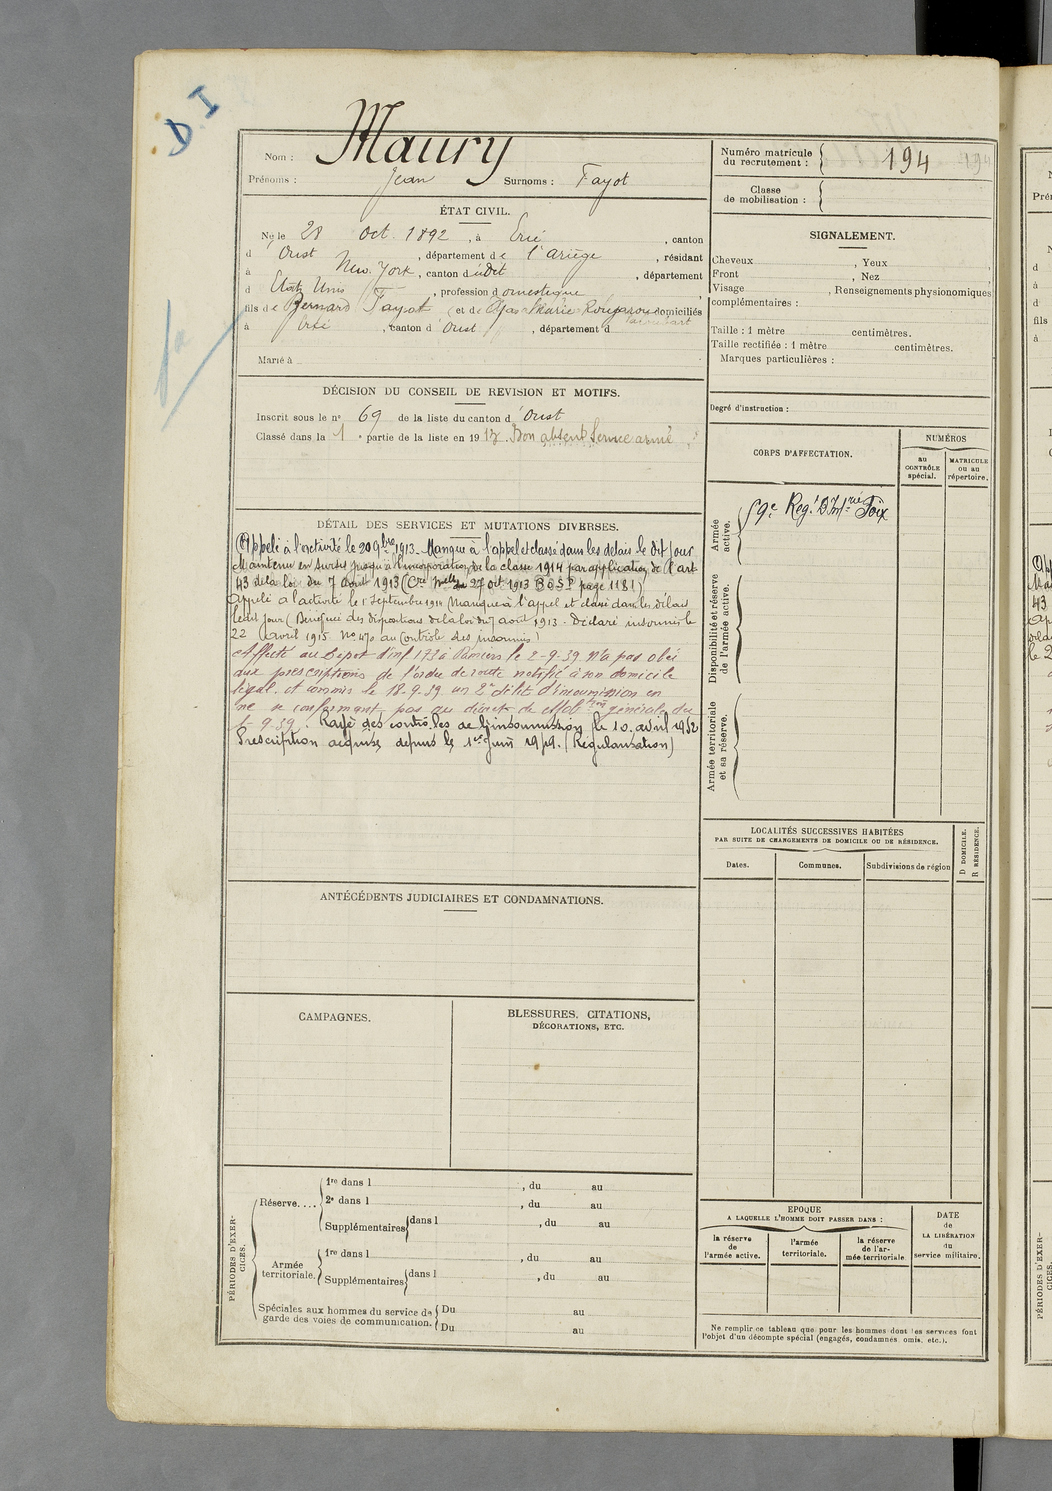 D.I
Nom : Maury
Prénoms : Jean Surnoms : Tayot
Numéro matricule
du recrutement : 194
Classe
de mobilisation :
ÉTAT CIVIL.
Né le 28 Oct. 1892, à Ercé, canton
d'Oust, département de l'Ariège, résidant
à New. York, canton dudit, département
d États Unis, profession domestique
fils de Bernard Tayot et de Marie domiciliés
à Ercé, canton d'Oust, département d
Marié à
SIGNALEMENT.
Cheveux , Yeux ,
Front , Nez
Visage , Renseignements physionomiques
complémentaires :
Taille : 1 mètre centimètres.
Taille rectifiée : 1 mètre centimètres.
Marques particulières :
Degré d'instruction :
DÉCISION DU CONSEIL DE REVISION ET MOTIFS.
Inscrit sous le n° 69 de la liste du canton d'Oust
Classé dans la 1e partie de la liste en 1913. Bon absent Service armé
CORPS D'AFFECTATION.
NUMÉROS
au
CONTRÔLE
spécial.
MATRICULE
ou au
répertoire.
Armée
active.
59e Reg.t D'Inf.rie Foix
Disponibilité et réserve
de l'armée active.
Armée territoriale
et sa réserve.
DÉTAIL DES SERVICES ET MUTATIONS DIVERSES.
Appelé à l'activité le 20 9bre 1913. Manque à l'appel et classé dans les délais le dit jour
Maintenu en sursis jusqu'à l'incorporation de la classe 1914 par application de l'art
43 de la loi du 7 Août 1913 (Cre Melle du 27 oct 1913 B.O.S.P page 1181)
Appelé à l'activité le 1 Septembre 1914 (Manque à l'appel et classé dans les délais
ledit jour (Bénéficie des dispositions de la loi du 7 août 1913 - Déclaré insoumis le
22 Avril 1915 No 470 au Contrôle des insoumis)
Affecté au Dépôt d'inf 173 à Pamiers le 2-9-39 n'a pas obéi
aux prescriptions de l'ordre de route notifié à son domicile
légal. et commis le 18.9.39 un 2e délit d'insoumission en
ne se conformant pas au décret de Mobtion générale du
1-9.39. Rayé des contrôles de l'insoumission le 10 avril 1952
Prescription acquise depuis le 1er Juin 1949. (Régularisation)
LOCALITÉS SUCCESSIVES HABITÉES
PAR SUITE DE CHANGEMENTS DE DOMICILE OU DE RÉSIDENCE.
Dates. Communes. Subdivisions de région
D DOMICILE.
R RÉSIDENCE.
ANTÉCÉDENTS JUDICIAIRES ET CONDAMNATIONS.
CAMPAGNES.
BLESSURES, CITATIONS,
DÉCORATIONS, ETC.
PÉRIODES D'EXER-
CICES.
Réserve....
1re dans l , du au
2e dans l , du au
Supplémentaires dans l , du au
Armée
territoriale.
1re dans l , du au
Supplémentaires dans l , du au
Spéciales aux hommes du service de
garde des voies de communication.
Du au
Du au
EPOQUE
A LAQUELLE L'HOMME DOIT PASSER DANS :
la réserve
de
l'armée active.
l'armée
territoriale.
la réserve
de l'ar-
mée territoriale
DATE
de
LA LIBÉRATION
du
service militaire.
Ne remplir ce tableau que pour les hommes dont les services font
l'objet d'un décompte spécial (engagés, condamnés, omis, etc.).